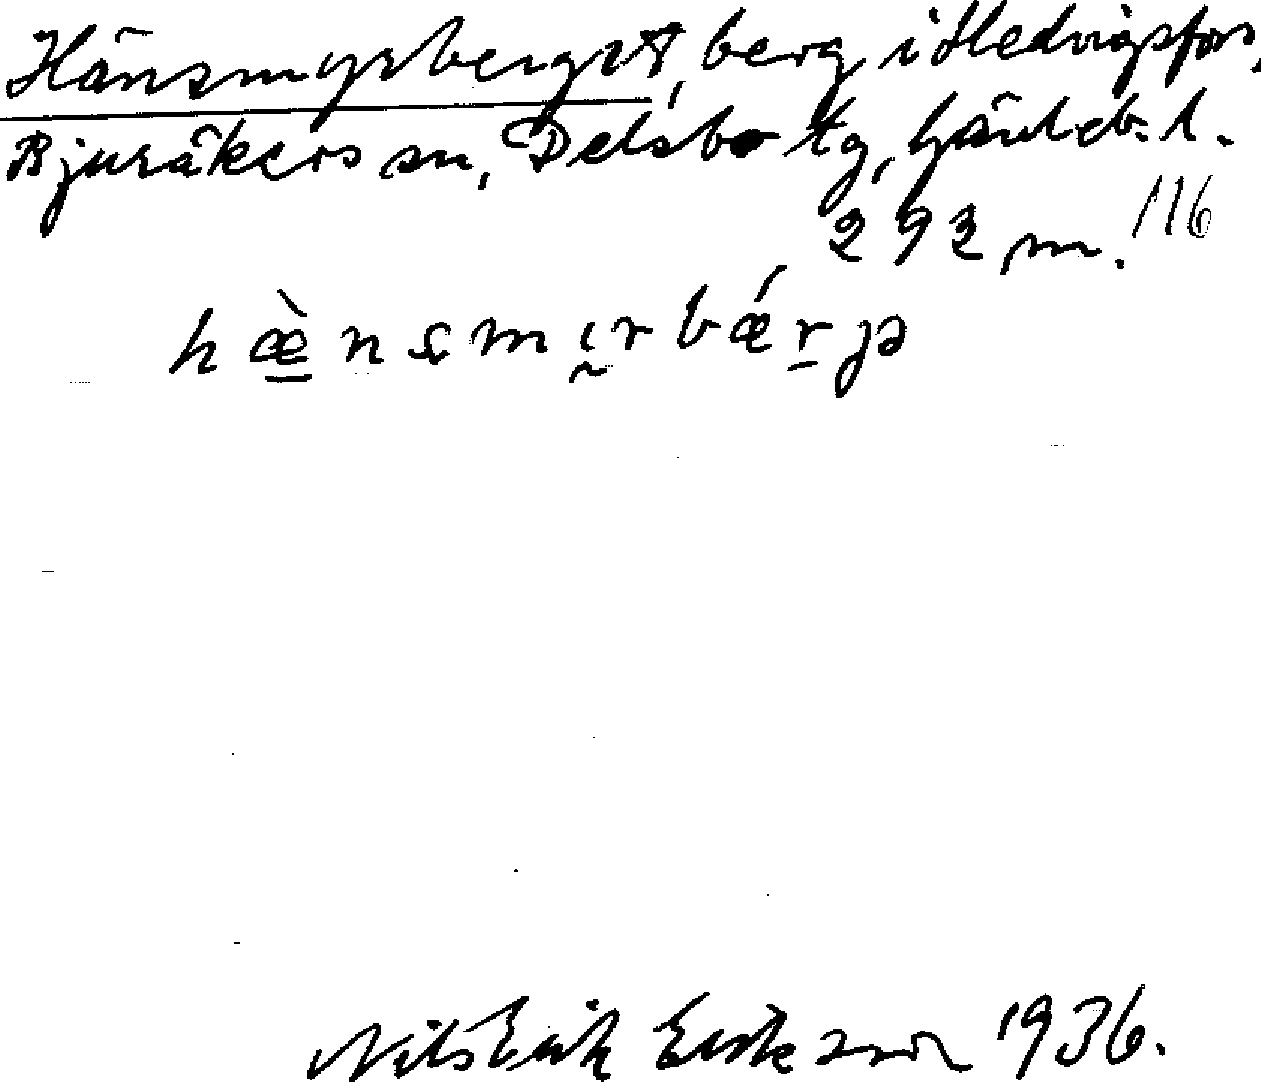 Hänsmyrberget, berg i Hedvigsfors,
Bjuråkers sn, Delsbo tg, Gävleb. l.
292 m. 116
hæ̀nsmɪrbǽrjə
Nils Erik Eriksson 1936.